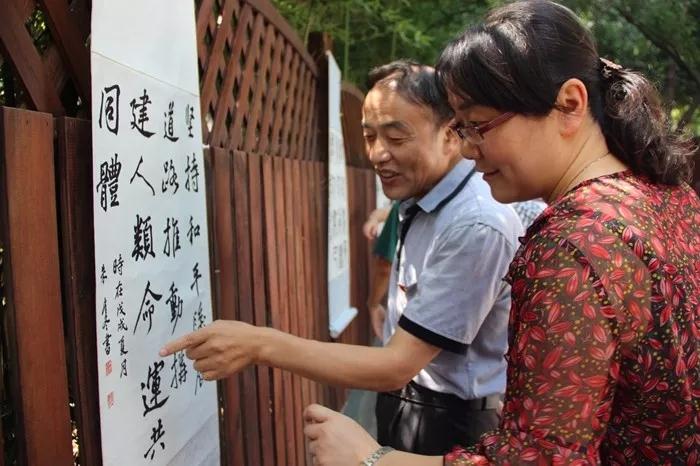 坚持和平發展
道路推動搆
建人類命運共
同體
時在戊戌夏月
朱 書